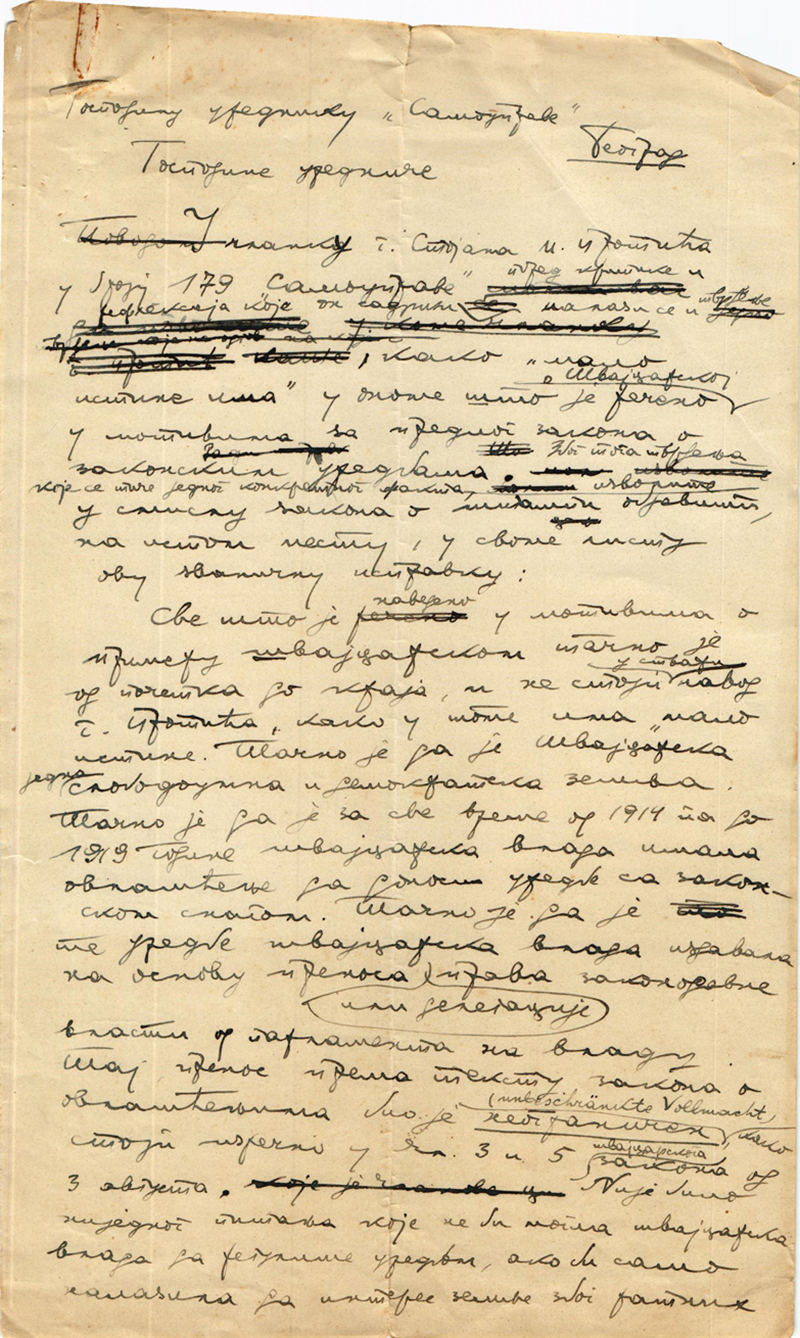 Господину уреднику „Самоуправе"
Београд
Господине уредниче
Поводом У чланку г. Стојана М. Протића
поред критике и
у броју 179 „Самоуправе"
рефлексија које он садржи налази се и тврђење
, како „мало
о Швајцарској
истине има" у ономе што је речено
у мотивима за предлог закона о
Због тога тврђења
законским уредбама.
које се тиче једног конкретног факта, изволите
у смислу закона о штампи објавити,
на истом месту, у своме листу
ову званичну исправку:
наведено
Све што је речено у мотивима о
примеру швајцарском тачно је
у ствари
од почетка до краја, и не стоји навод
г. Протића, како у томе има „мало
истине. Тачно је да је Швајцарска
једна слободоумна и демократска земља.
Тачно је да је за све време од 1914 па до
1919 године швајцарска влада имала
овлашћење да доноси уредбе са закон-
ском снагом. Тачно је да је
те уредбе швајцарска влада издавала
на основу преноса права законодавне
или делегације
власти од парламента на владу
Тај пренос према тексту закона о
(unbeschränkte Vollmacht)
овлашћењима био је неограничен, како
швајцарскога
стоји изречно у чл. 3 и 5 закона од
3 августа. које је Није било
ниједног питања које не би могла швајцарска
влада да регулише уредбом, ако би само
налазила да интерес земље због ратних